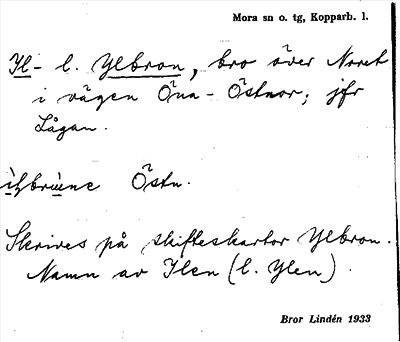 Mora sn o. tg, Kopparb. l.
Il- l. Ylbron, bro över Noret
i vägen Öna - Östnor; jfr
Lågan.
Östn.
Skrives på skifteskartor Ylbron.
Namn av Ilen (l. Ylen).
Bror Lindén 1933